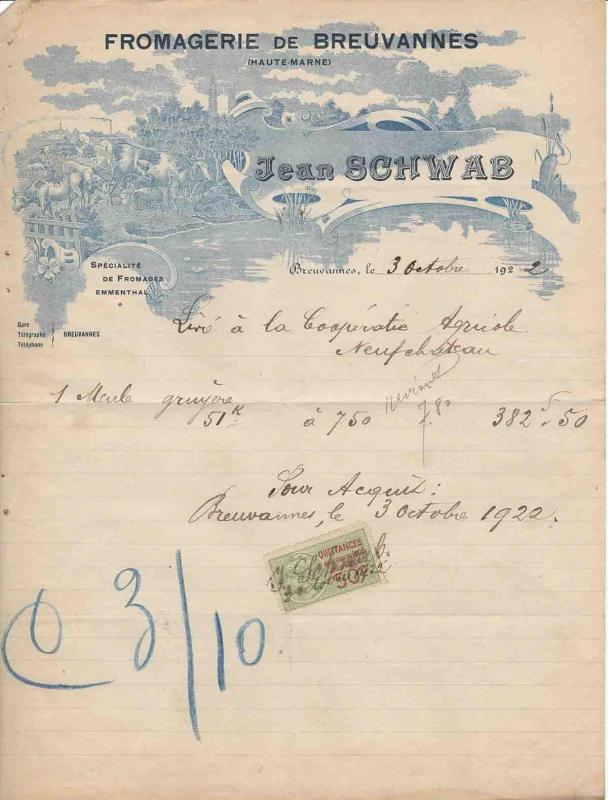 FROMAGERIE DE BREUVANNES
(HAUTE-MARNE)
Jean SCHWAB
SPÉCIALITÉ
DE FROMAGES
EMMENTHAL
Breuvannes, le 3 Octobre 1922
Gare
Télégraphe BREUVANNES
Téléphone
Livré à la Coopératie Agricole
Neufchateau
1 Meule gruyère
51K à 750 revient 7.80 382 f 50
Pour Acquit:
Breuvannes, le 3 Octobre 1922.
QUITTANCES
J. Schwab
3 octobre 1922
C 3/10